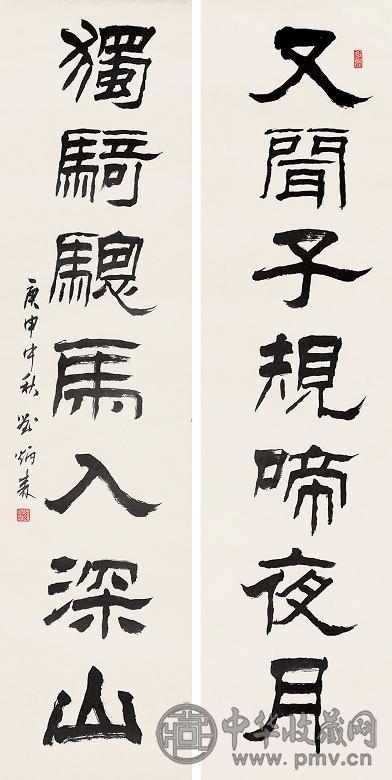 又聞子規啼夜月
獨騎驄馬入深山
庚申中秋 劉炳森
中华收藏网
www.pmv.cn